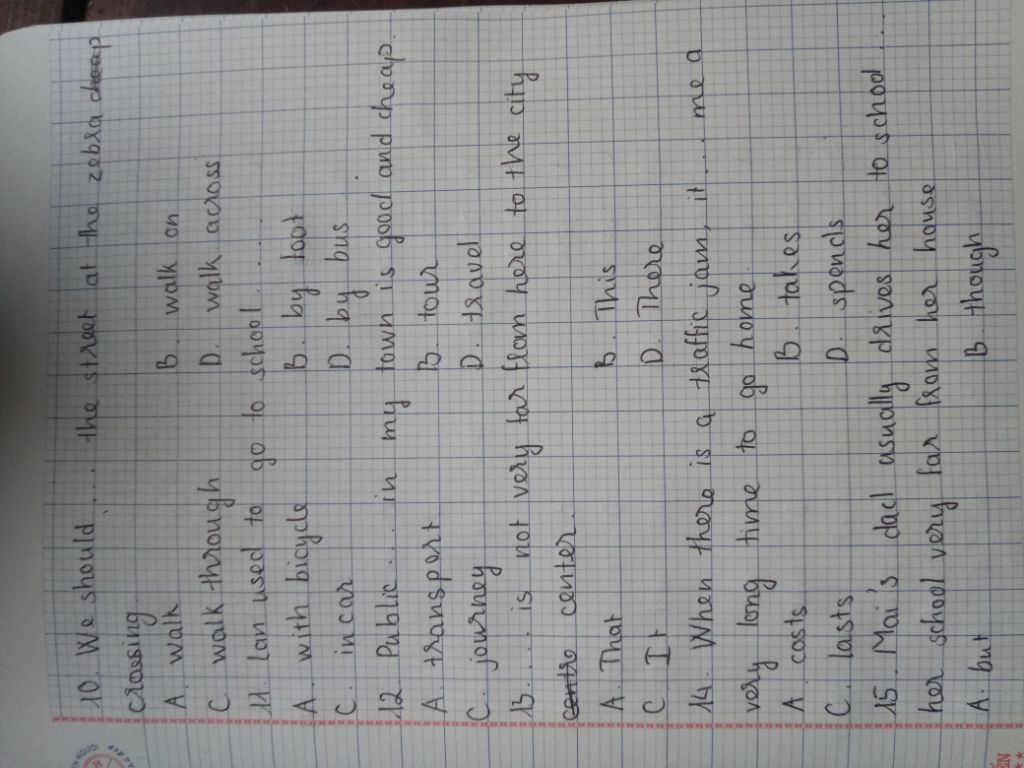 10. We should .... the street at the zebra
crossing.
A. walk B. walk on
C. walk through D. walk across
11. Lan used to go to school .....
A. with bicycle B. by foot
C. in car D. by bus
12. Public .... in my town is good and cheap.
A. transport B. tour
C. journey D. travel
13. .... is not very far from here to the city
center.
A. That B. This
C. It D. There
14. When there is a traffic jam, it .... me a
very long time to go home.
A. costs B. takes
C. lasts D. spends
15. Mai's dad usually drives her to school ....
her school very far from her house
A. but B. though